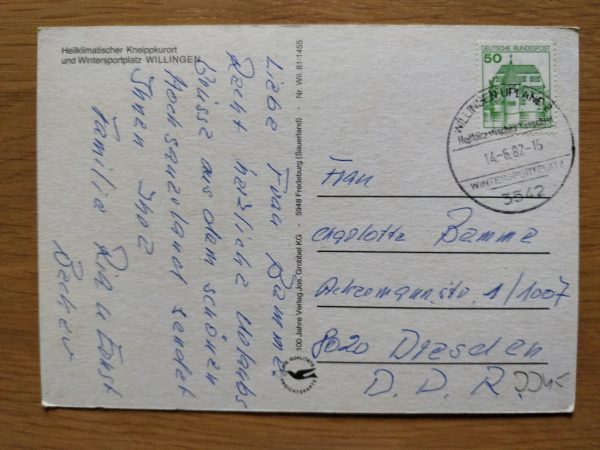 Heilklimatischer Kneippkurort
und Wintersportplatz WILLINGEN
Liebe Frau Bamme.
Recht herzliche Urlaubs
Grüsse aus dem schönen
Hochsauerland sendet
Ihnen Ihre
Familie
Ernst
Becker
100 Jahre Verlag Jos. Grobbel KG - 5948 Fredeburg (Sauerland) Nr. Wil. 81:1455
DEUTSCHE BUNDESPOST
50
WILLINGEN (UPLAND) 2
Heilklimatischer Kurort
14.-6.82-15
WINTERSPORTPLATZ
3542
Frau
Charlotte Bamme
1/1007
8020 Dresden
D. D. R.
QUALITÄTS
ANSICHTSKARTE